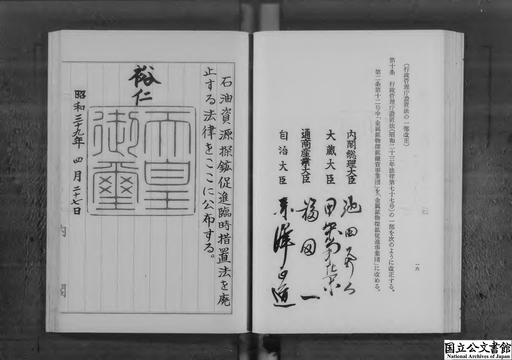 （行政管理庁設置法の一部改正）
第十条　行政管理庁設置法（昭和二十三年法律第七十七号）の一部を次のように改正する。
第二条第十二号中「金属鉱物探鉱融資事業団」を「金属鉱物探鉱促進事業団」に改める。
一六
内閣総理大臣　池田勇人
大蔵大臣　田中角栄
通商産業大臣　福田一
自治大臣　赤澤正道
石油資源探鉱促進臨時措置法を廃
止する法律をここに公布する。
裕仁
天皇御璽
昭和三十九年四月二十七日
内閣
国立公文書館
National Archives of Japan